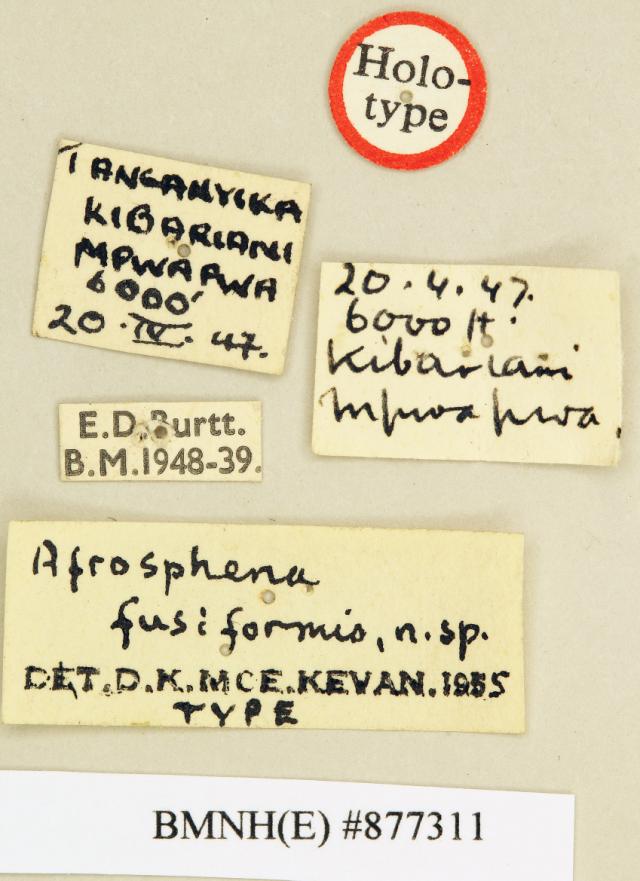 Holo-
type
TANGANYIKA
KIBARIANI
MPWAPWA
6000'
20.IV.47.
20.4.47.
6000 ft.
Kibariani
Mpwapwa.
E.D.Burtt.
B.M.1948-39.
Afrosphena
fusiformis, n.sp.
DET.D.K.MCE.KEVAN.1955
TYPE
BMNH(E) #877311